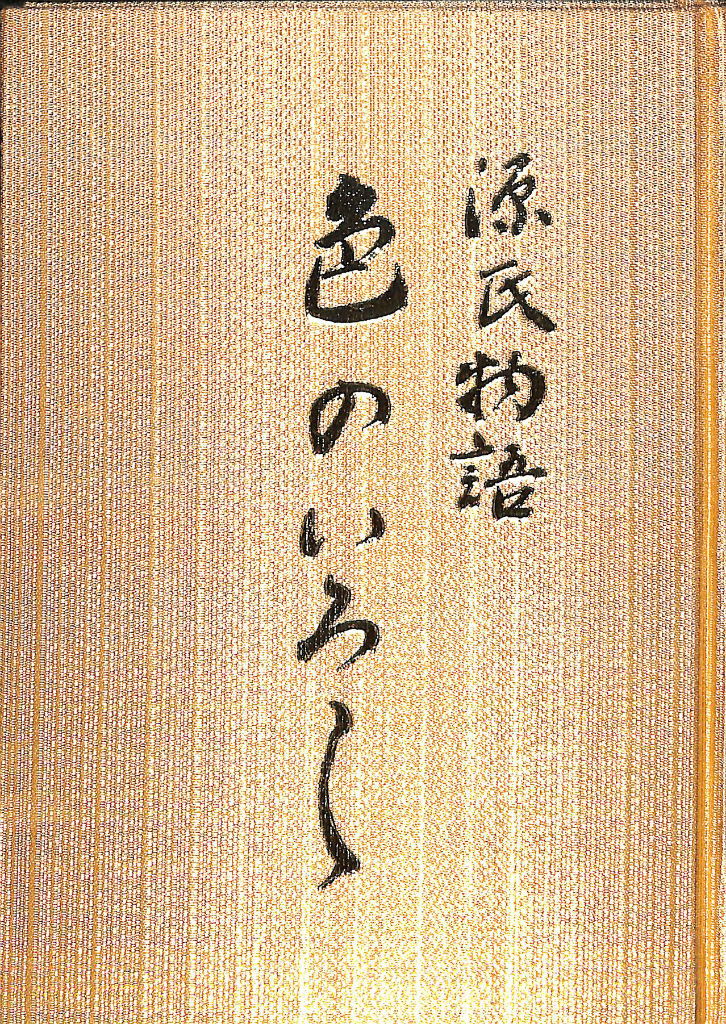 源氏物語
色のいろ〱